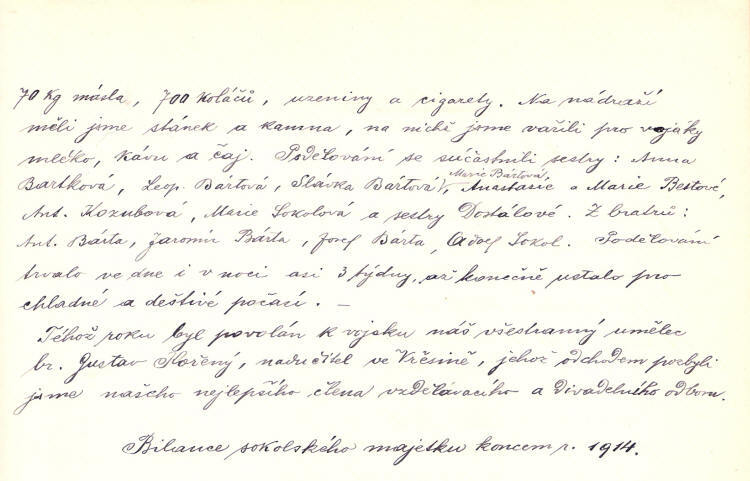 70 Kg másla, 700 Koláčů, uzeniny a cigarety. Na nádraží
měli jsme stánek a kamna, na nichž jsme vařili pro vojáky
mléko, kávu a čaj. Podělování se súčastnili sestry: Anna
Marie Bártová,
Bartková, Leop. Bártová, Slávka Bártová, Anastasie a Marie Bestové,
Ant. Kozubová, Marie Sokolová a sestry Dostálové. Z bratrů:
Ant. Bárta, Jaromír Bárta, Josef Bárta, Adolf Sokol. Podělování
trvalo ve dne i v noci asi 3 týdny, až konečně ustalo pro
chladné a deštivé počasí. —
Téhož roku byl povolán k vojsku náš všestranný umělec
br. Gustav Hořený, nadučitel ve Vřesině, jehož odchodem pozbyli
jsme našeho nejlepšího člena vzdělávacího a divadelního odboru.
Bilance sokolského majetku koncem r. 1914.